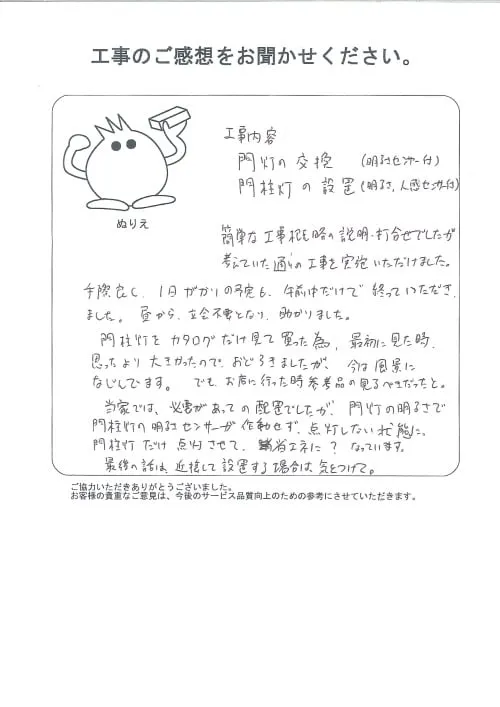 工事のご感想をお聞かせください。
ぬりえ
工事内容
門灯の交換 (明るさセンサー付)
門柱灯の設置 (明るさ,人感センサー付)
簡単な工事概略の説明・打合せでしたが
考えていた通りの工事を実施いただけました。
手際良く、1日がかりの予定も、午前中だけで終っていただき、
ました。昼から、立会不要となり、助かりました。
門柱灯をカタログだけ見て買った為、最初に見た時、
思ったより大きかったので、おどろきましたが、今は風景に
なじんでます。でも、お店に行った時参考品の見るべきだったと。
当家では、必要があっての配置でしたが、門灯の明るさで
門柱灯の明るさセンサーが作動せず、点灯しない状態に、
門柱灯だけ点灯させて、省エネに?なっています。
最後の話は、近接して設置する場合は気をつけて。
ご協力いただきありがとうございました。
お客様の貴重なご意見は、今後のサービス品質向上のための参考にさせていただきます。